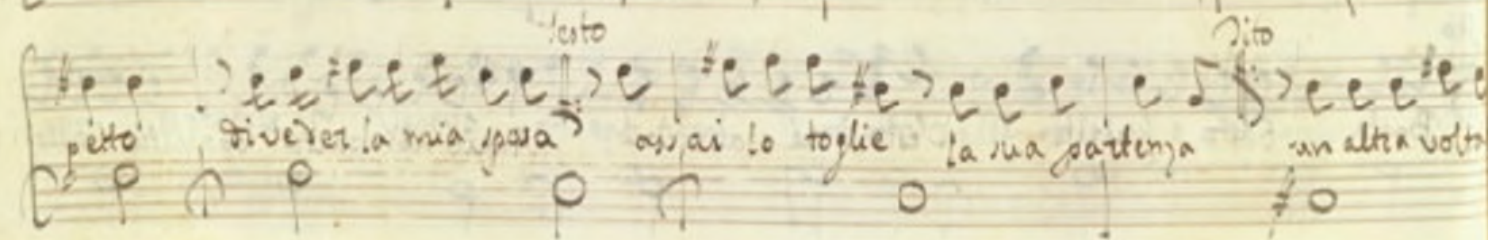 Sesto Tito
petto di veder la mia sposa assai lo toglie la sua partenza un altra volta